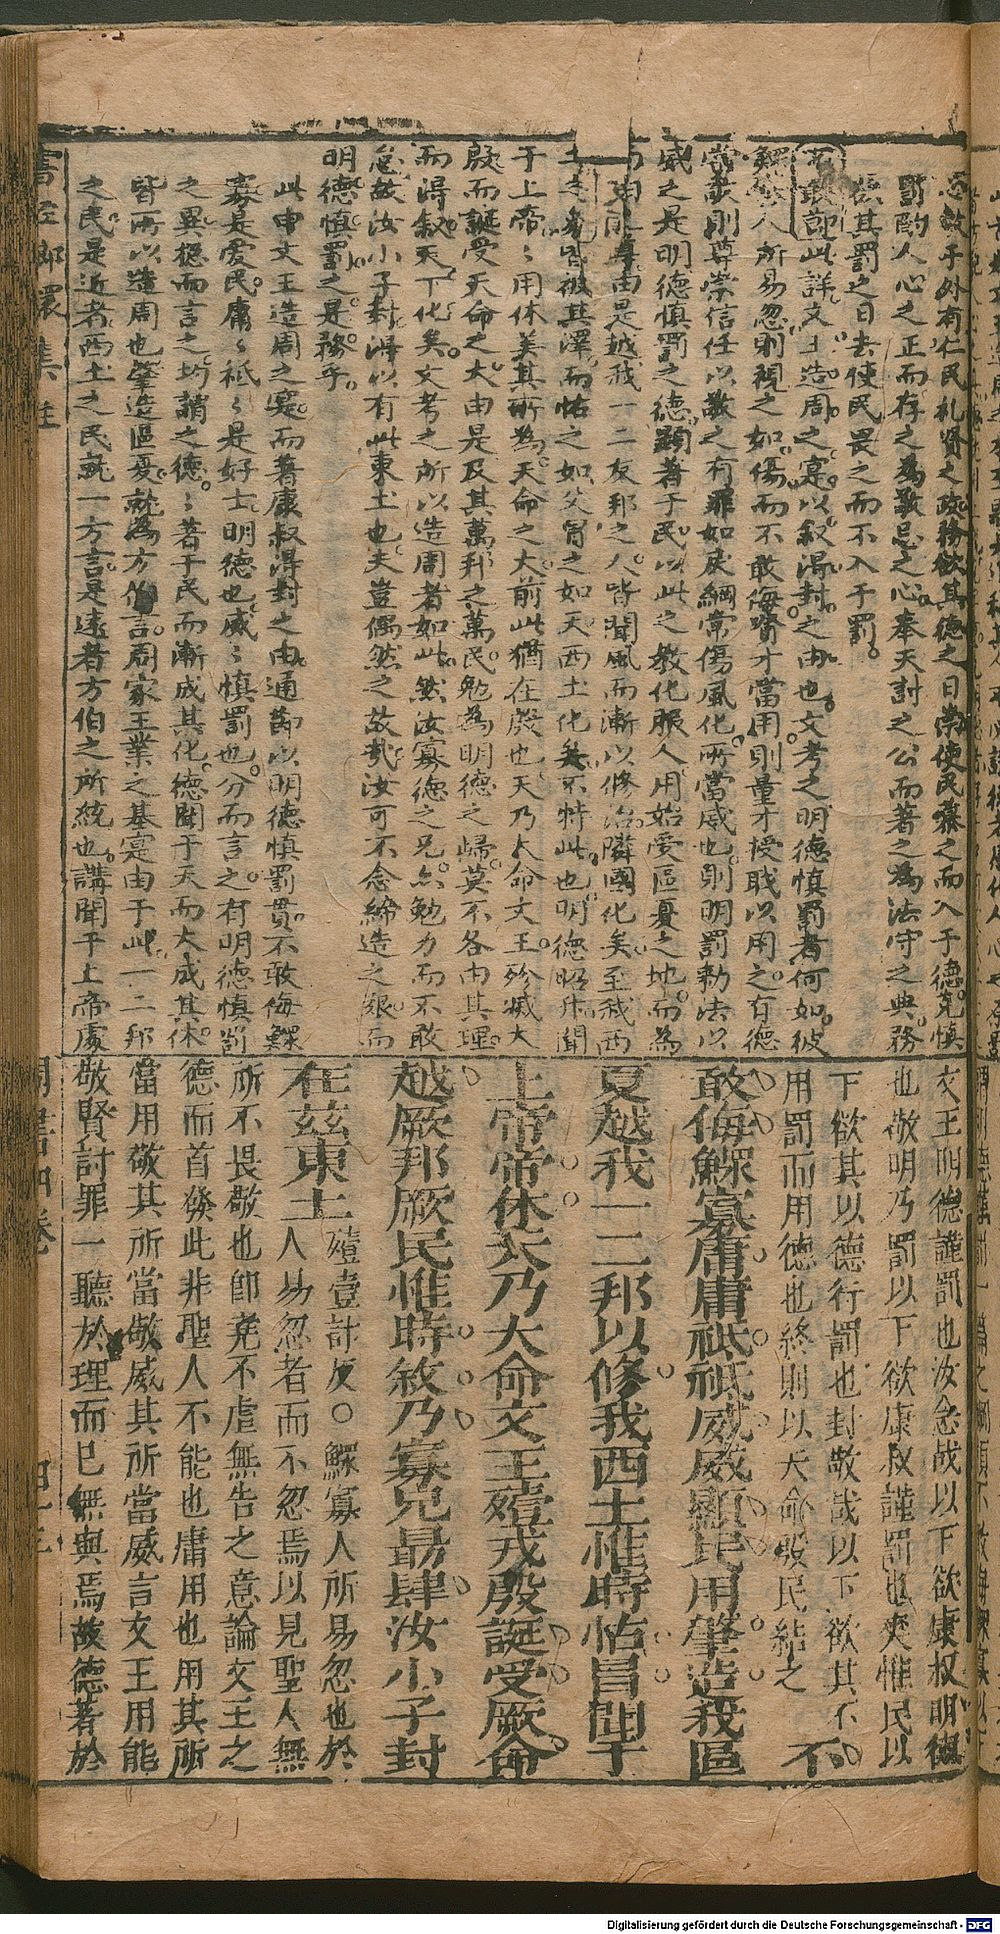 忌敬于外有仁民礼賢之政務欲其德之日崇使民慕之而入于德克慎
罰酌人心之正而存之為敬忌之心奉天討之公而著之為法守之典務
欲其罰之日去使民畏之而不入于罰。
不敢節此詳文王造周之寔以叙淂封之由也文考之明德慎罰者何如彼
鰥寡人所易忽則視之如傷而不敢侮賢才當用則量才授職以用之有德
當敬則尊崇信任以敬之有罪如戾綱常傷風化所當威也則明罰勑法以
威之是明德慎罰之德顯著于民以此之教化服人用始受區夏之地而為
由是越我一二友邦之人皆聞風而漸以修治隣國化矣至我西
土之衆皆被其澤而怙之如父冒之如天西土化矣不特此也明德昭升聞
于上帝〻用休美其所為天命之大前此猶在殷也天乃大命文王殄滅大
殷而誕受天命之大由是及其萬邦之萬民勉為明德之歸莫不各由其理
而淂叙天下化矣文考之所以造周者如此然汝寡德之兄亦勉力而不敢
怠故汝小子封淂以有此東土也夫豈偶然之故哉汝可不念締造之艱而
明德慎罰之是務乎
此申文王造周之寔而著康叔淂封之由通節以明德慎罰貫不敢侮鰥
寡是爱民庸〻祗〻是好士明德也威〻慎罰也分而言之有明德慎罰
之異揔而言之均謂之德〻著于民而漸成其化德聞于天而大成其休
皆所以造周也肇造區夏就為方伯言周家王業之基寔由于此一二邦
之民是近者西土之民就一方言是遠者方伯之所統也講聞于上帝處
文王明德謹罰也汝念哉以下欲康叔明德
也敬明乃罰以下欲康叔謹罰也爽惟民以
下欲其以德行罰也封敬哉以下欲其不
用罰而用德也終則以天命殷民結之 不
敢侮鰥寡庸庸祗祗威威顯民用肇造我區
夏越我一二邦以修我西土惟時怙冒聞于
上帝帝休天乃大命文王殪戎殷誕受厥命
越厥邦厥民惟時敘乃寡兄勗肆汝小子封
在茲東土殪壹計反○鰥寡人所易忽也於
人易忽者而不忽焉以見聖人無
所不畏敬也即堯不虐無告之意論文王之
德而首發此非聖人不能也庸用也用其所
當用敬其所當敬威其所當威言文王用能
敬賢討罪一聽於理而已無與焉故德著於
書經 集註 周書四卷
Digitalisierung gefördert durch die Deutsche Forschungsgemeinschaft - DFG